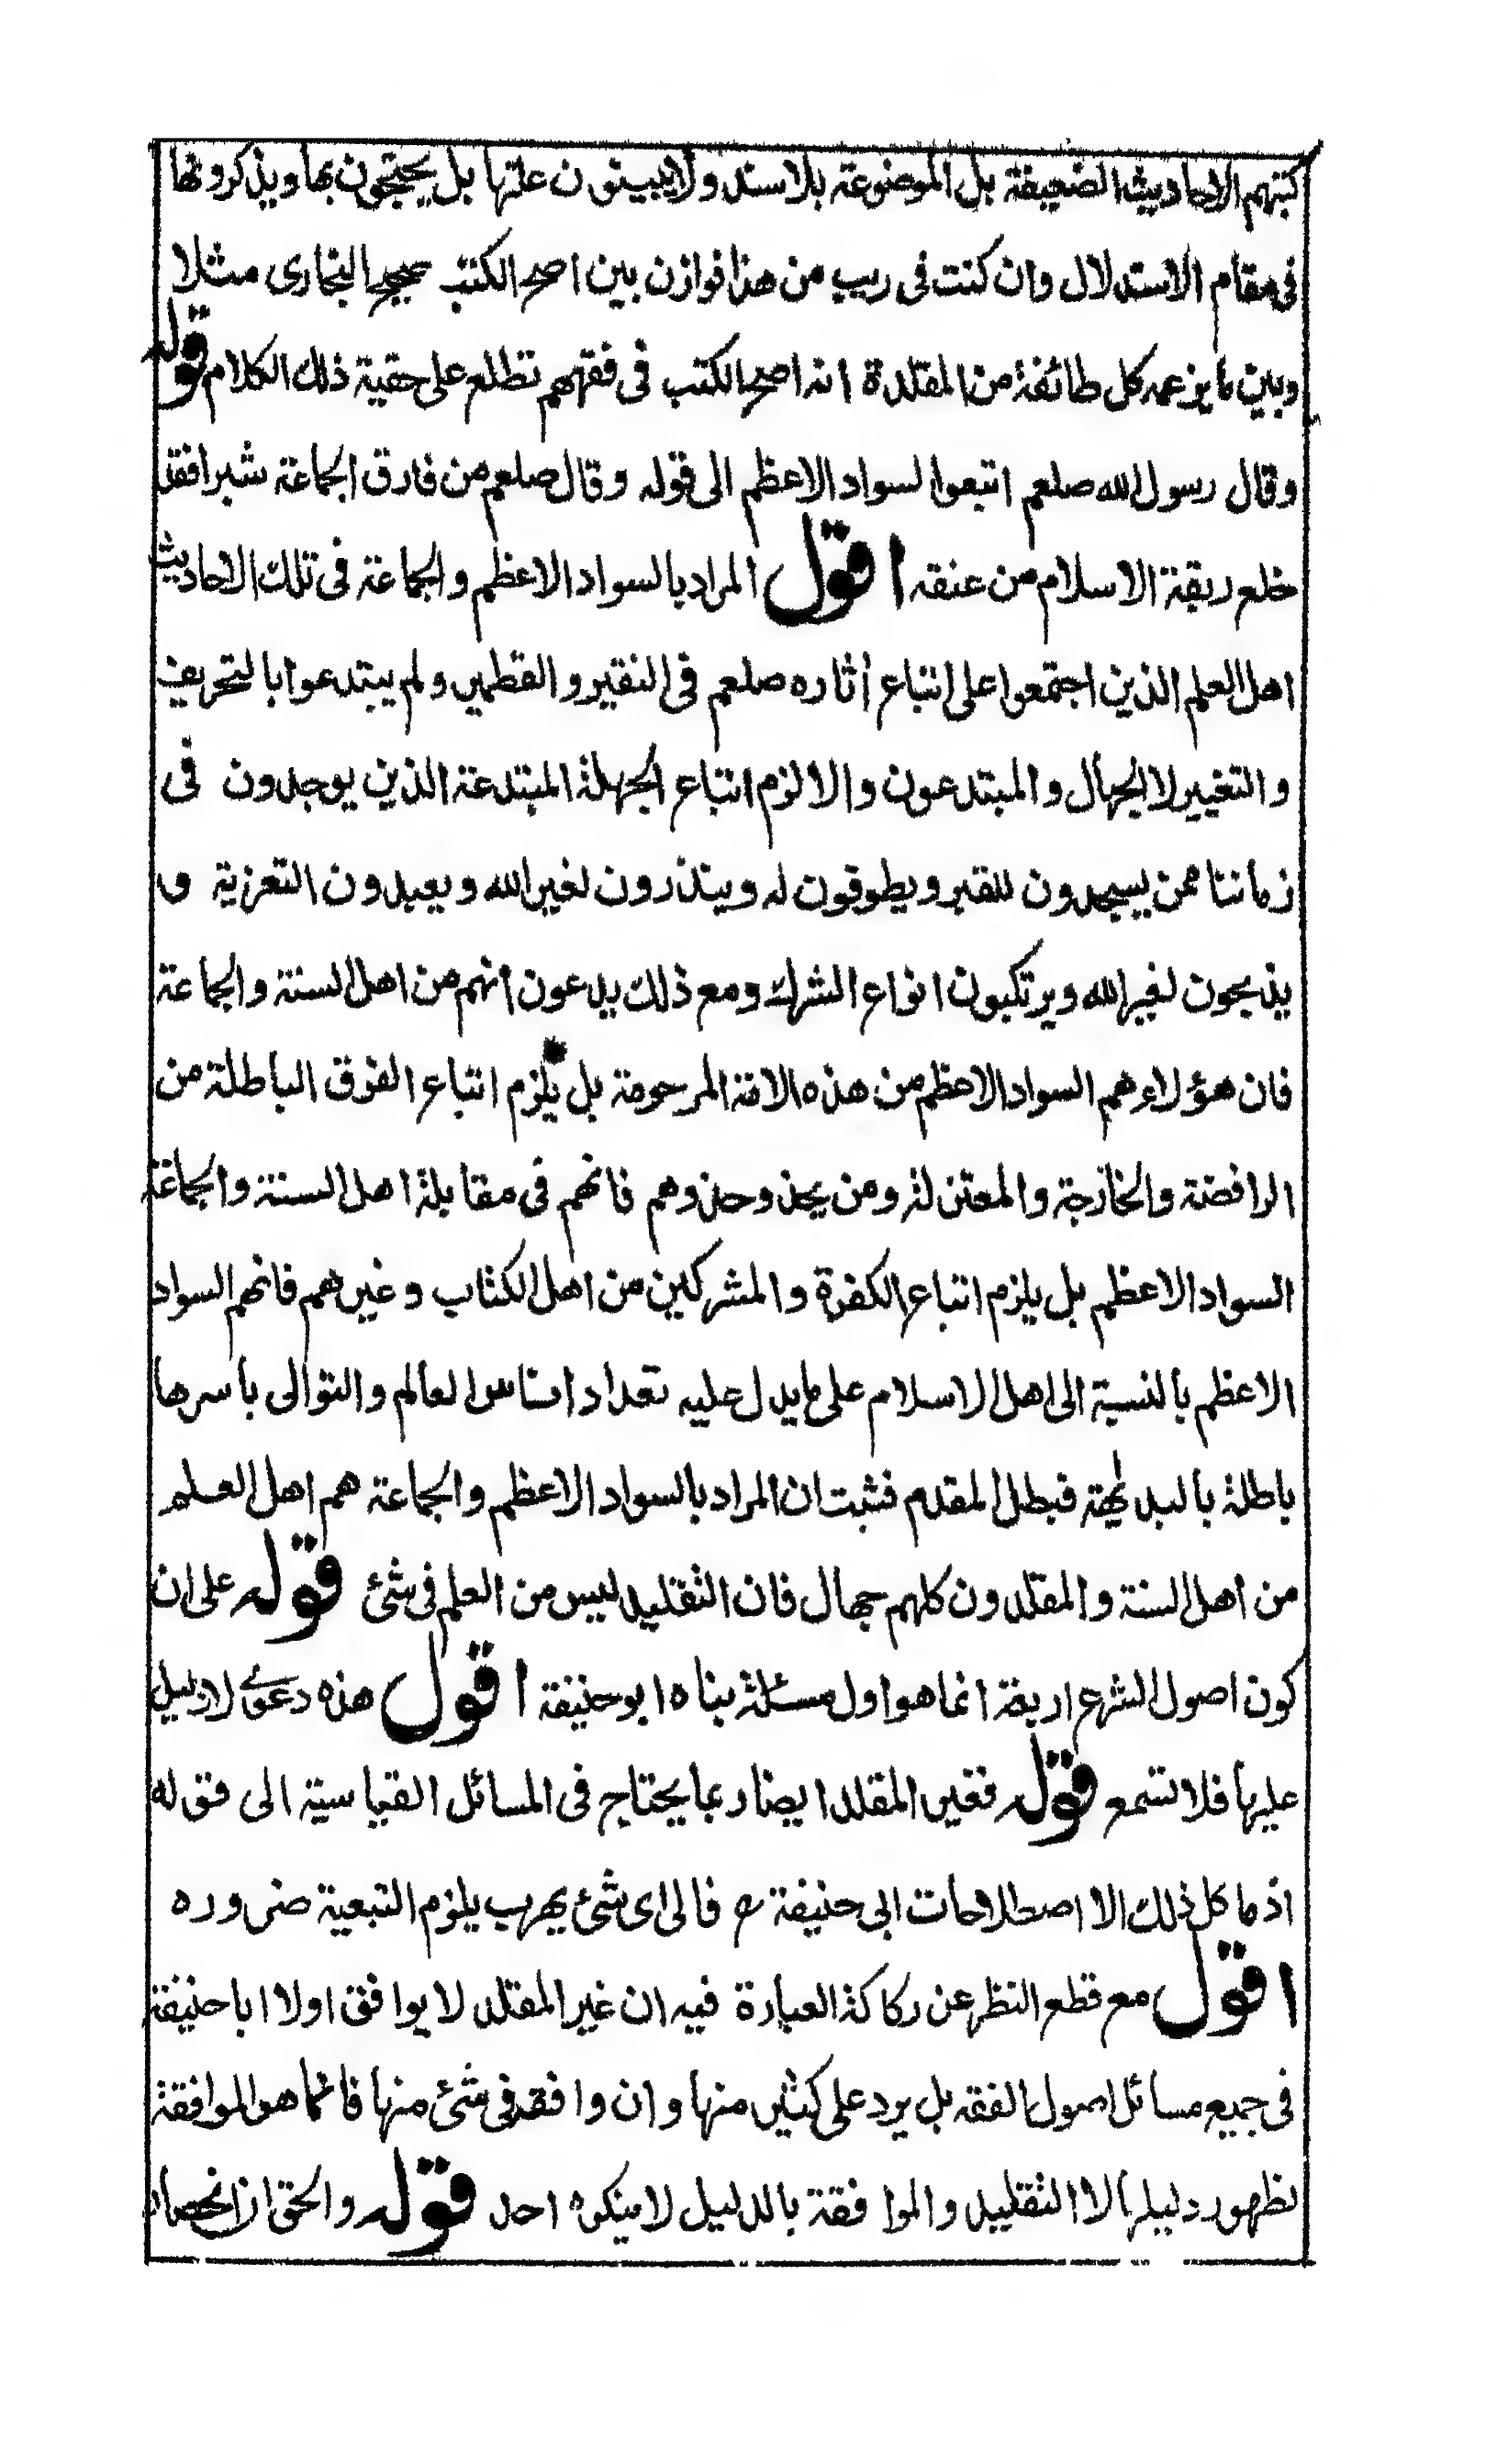 كتبهم الاحاديث الضعيفة بل الموضوعة بلا سند ولا يبينون علتها بل يحتجون بها ويذكرونها
فى مقام الاستدلال وان كنت فى ريب من هذا فوازن بين اصح الكتب صحيح البخارى مثلا
وبين ما يزعمه كل طائفة من المقلدة انه اصح الكتب فى فقههم تطلع على حقية ذلك الكلام قوله
وقال رسول الله صلعم اتبعوا السواد الاعظم الى قوله وقال صلعم من فارق الجماعة شبرا فقد
خلع ربقة الاسلام من عنقه اقول المراد بالسواد الاعظم والجماعة فى تلك الاحاديث
اهل العلم الذين اجتمعوا على اتباع أثاره صلعم فى النقير والقطمير ولم يبتدعوا بالتحريف
والتغيير لا الجهال والمبتدعون والا لزم اتباع الجهلة المبتدعة الذين يوجدون فى
زماننا ممن يسجدون للقبر ويطوفون له وينذرون لغير الله ويعبدون التعزية و
يذبحون لغير الله ويرتكبون انواع الشرك ومع ذلك يدعون أنهم من اهل السنة والجماعة
فان هؤلاء هم السواد الاعظم من هذه الامة المرحومة بل يلزم اتباع الفرق الباطلة من
الرافضة والخارجة والمعتزلة ومن يحذو حذوهم فانهم فى مقابلة اهل السنة والجماعة
السواد الاعظم بل يلزم اتباع الكفرة والمشركين من اهل الكتاب وغيرهم فانهم السواد
الاعظم بالنسبة الى اهل الاسلام على ما يدل عليه تعداد اناس العالم والتوالى باسرها
باطلة بالبداهة فبطل المقدم فثبت ان المراد بالسواد الاعظم والجماعة هم اهل العلم
من اهل السنة والمقلدون كلهم جهال فان التقليد ليس من العلم فى شئ قوله على ان
كون اصول الشرع اربعة انما هو اول مسئلة بناه ابو حنيفة اقول هذه دعوى لا دليل
عليها فلا تسمع قوله فغير المقلد ايضا ربما يحتاج فى المسائل القياسية الى قوله
اذ ما كل ذلك الا اصطلاحات ابى حنيفة رح فالى اى شئ يهرب يلزم التبعية ضروره
اقول مع قطع النظر عن ركاكة العبارة فيه ان غير المقلد لا يوافق اولا ابا حنيفة
فى جميع مسائل اصول الفقه بل يرد على كثير منها وان وافقه فى شئ منها فانما هو الموافقة
لظهور دليلها لا التقليد والموافقة بالدليل لا ينكره احد قوله والحق ان انحصار